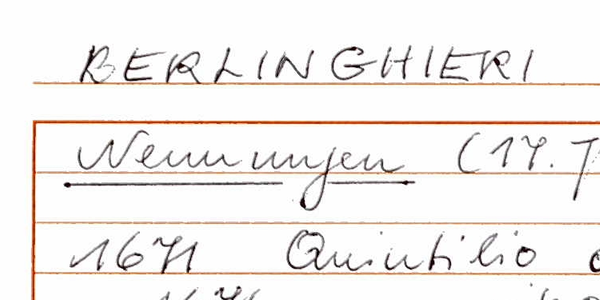 BERLINGHIERI
Nennungen (17. J
1671 Quintilio